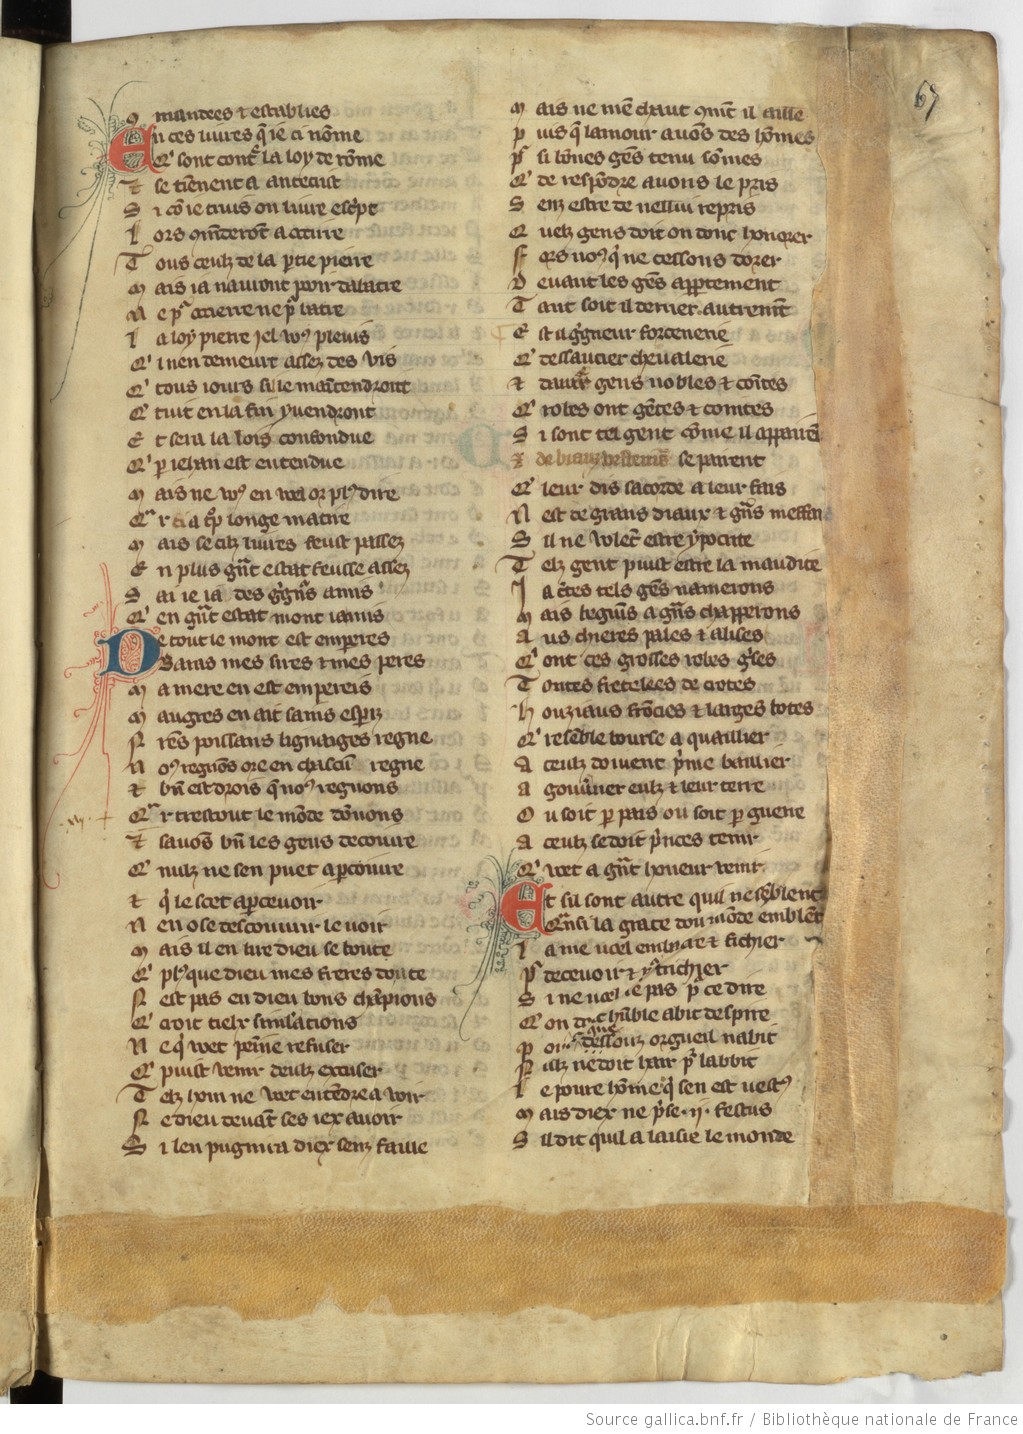 67
mandees et establies
En ces livres q̃ ie ci nõme
Q̃ sont contͥ la loy de rõme
Et se tiẽnent a antecrist
Si cõ ie truis ou livre escͥpt
Lors cõmderõt a occirre
Tous ceulz de la ꝑtie pierre
Mais ia nauront povir dabatre
Ne pͬ occierre ne pͬ batre
La loy pierre iel vꝰ plevis
Quil nen demeurt assez des vis
Qui tous iours si le maĩtendront
Que tuit en la fin y vendront
Et sera la lois confondue
Qui ꝑ iehan est entendue
Mais ne vꝰ en vœl or plꝰ dire
Car ci a tͬp longe matire
Mais se cilz livres feust passez
En plus gͬnt estat feusse assez
Sai ie ia des gͬgnͬs amis
Qui en gͬnt estat mont ia mis
De tout le mont est emperes
Baras mes sires et mes peres
Ma mere en est empereis
Maugres en ait sains esperiz
Nrẽs poissans lignaiges regne
Noꝰ regnõs ore en chascũ regne
Et bñ est drois q̃ noꝰ regnons
Car trestout le mõde dõnons
Et savõs bñ les gens decovire
Que nulz ne sen puet aꝑcovire
Et qͥ le scet aꝑcevoir
Nen ose descouvrir le voir
Mais il en lire dieu se boute
Qui plꝰ que dieu mes freres doute
Nest pas en dieu bons chãpions
Qui croit tielx simlˀations
Ne qͥ vœt peinne refuser
Qui puist venir deulz excuser
Telz hom ne vœt entẽdre a voir
Ne dieu devãt ses iex avoir
Si len pugnira diex senz faille
Mais ne men chaut cõmt il aille
Puis q̃ lamour avõs des hõmes
Pͬ si bõnes gẽs tenu sõmes
Que de resp̃ndre avons le pris
Senz estre de nellui repris
Quelz gens doit on donc honorer
Fors noꝰ qͥ ne cessons dorer
Devant les gẽs appertement
Tant soit il derrier autremẽt
Est il gͬgneur forcenerie
Que dessaucier chevalerie
Et damer gens nobles et cointes
Qui robes ont gẽtes et comtes
Si sont tel gent cõme il apparẽt
se parent
Que leur dis sacorde a leur fais
Nest ce grans diaux et gͬns meffais
Sil ne volẽt estre ypocrite
Telz gent puist estre la maudite
Ia certes tels gẽs namerons
Mais beguĩs a gͬns chapperons
Aus chieres pales et alises
Qui ont ces grosses robes gͬses
Toutes fretelees de crotes
Houziaus frõcies et larges botes
Qui resẽble bourse a quaillier
A ceulz doivent pͬnce baillier
A gouvͬner eulz et leur terre
Ou soit ꝑ pais ou soit ꝑ guerre
A ceulz se doit pͬnces tenir
Qui vœt a gͬnt honeur venir
Et sil sont autre quil ne sẽblent
Quensi la grace dou mõde emblẽt
La me vœl embatre et fichier
Pͬ decevoir et pͬ trichier
Si ne vœl ie pas pͬ ce dire
Que on doie humble abit despire
Por que dessouz orgueil nabit
Nulz ne doit hair pͬ labbit
Le povre hõme qͥ sen est vestꝰ
Mais diex ne pͬse .ij. festus
Sil dit quil a laisie le monde
Source gallica.bnf.fr / Bibliothèque nationale de France